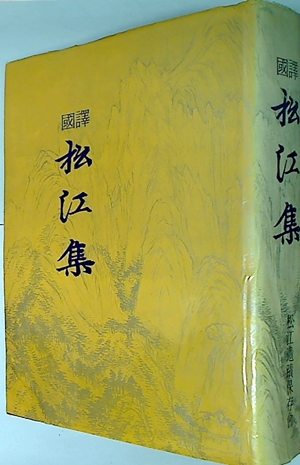 國譯
松江集
國譯
松江集
松江遺蹟保存會